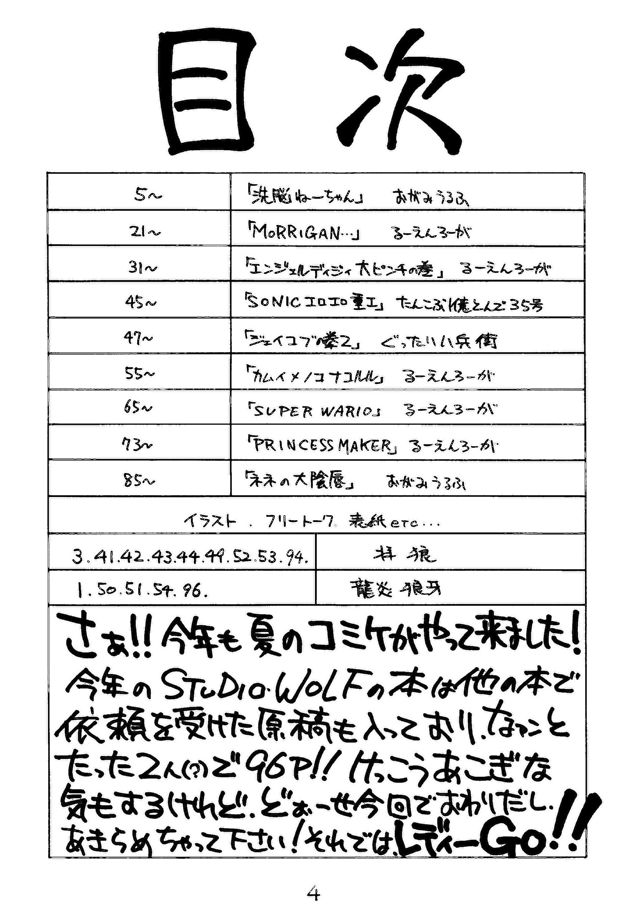 目次
5～ 「洗脳ねーちゃん」 おがみうるふ
21～ 「MORRIGAN…」 るーえんろーが
31～ 「エンジェルディジィ大ピンチの巻」 るーえんろーが
45～ 「SONICエロエロ重工」 たんこぶ1億とんで35号
47～ 「ジェイコブの拳2」 ぐったい八兵衛
55～ 「カムイメノコナコルル」 るーえんろーが
65～ 「SUPER WARIO」 るーえんろーが
73～ 「PRINCESS MAKER」 るーえんろーが
85～ 「ネネの大陰唇」 おがみうるふ
イラスト．フリートーク 表紙etc…
3.41.42.43.44.49.52.53.94. 拝 狼
1.50.51.54.96. 龍炎 狼牙
さぁ!!今年も夏のコミケがやって来ました!
今年のSTUDIO・WOLFの本は他の本で
依頼を受けた原稿も入っており、なァンと
たった2人(?)で96P!! けっこうあこぎな
気もするけれど、どぉーせ今回でおわりだし、
あきらめちゃって下さい!それでは、レディーGo!!
4